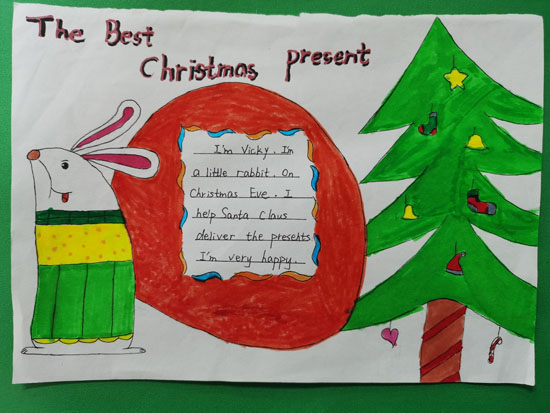 The Best
Christmas present
I'm Vicky. I'm
a little rabbit. On
Christmas Eve, I
help Santa Claus
deliver the presents
I'm very happy.